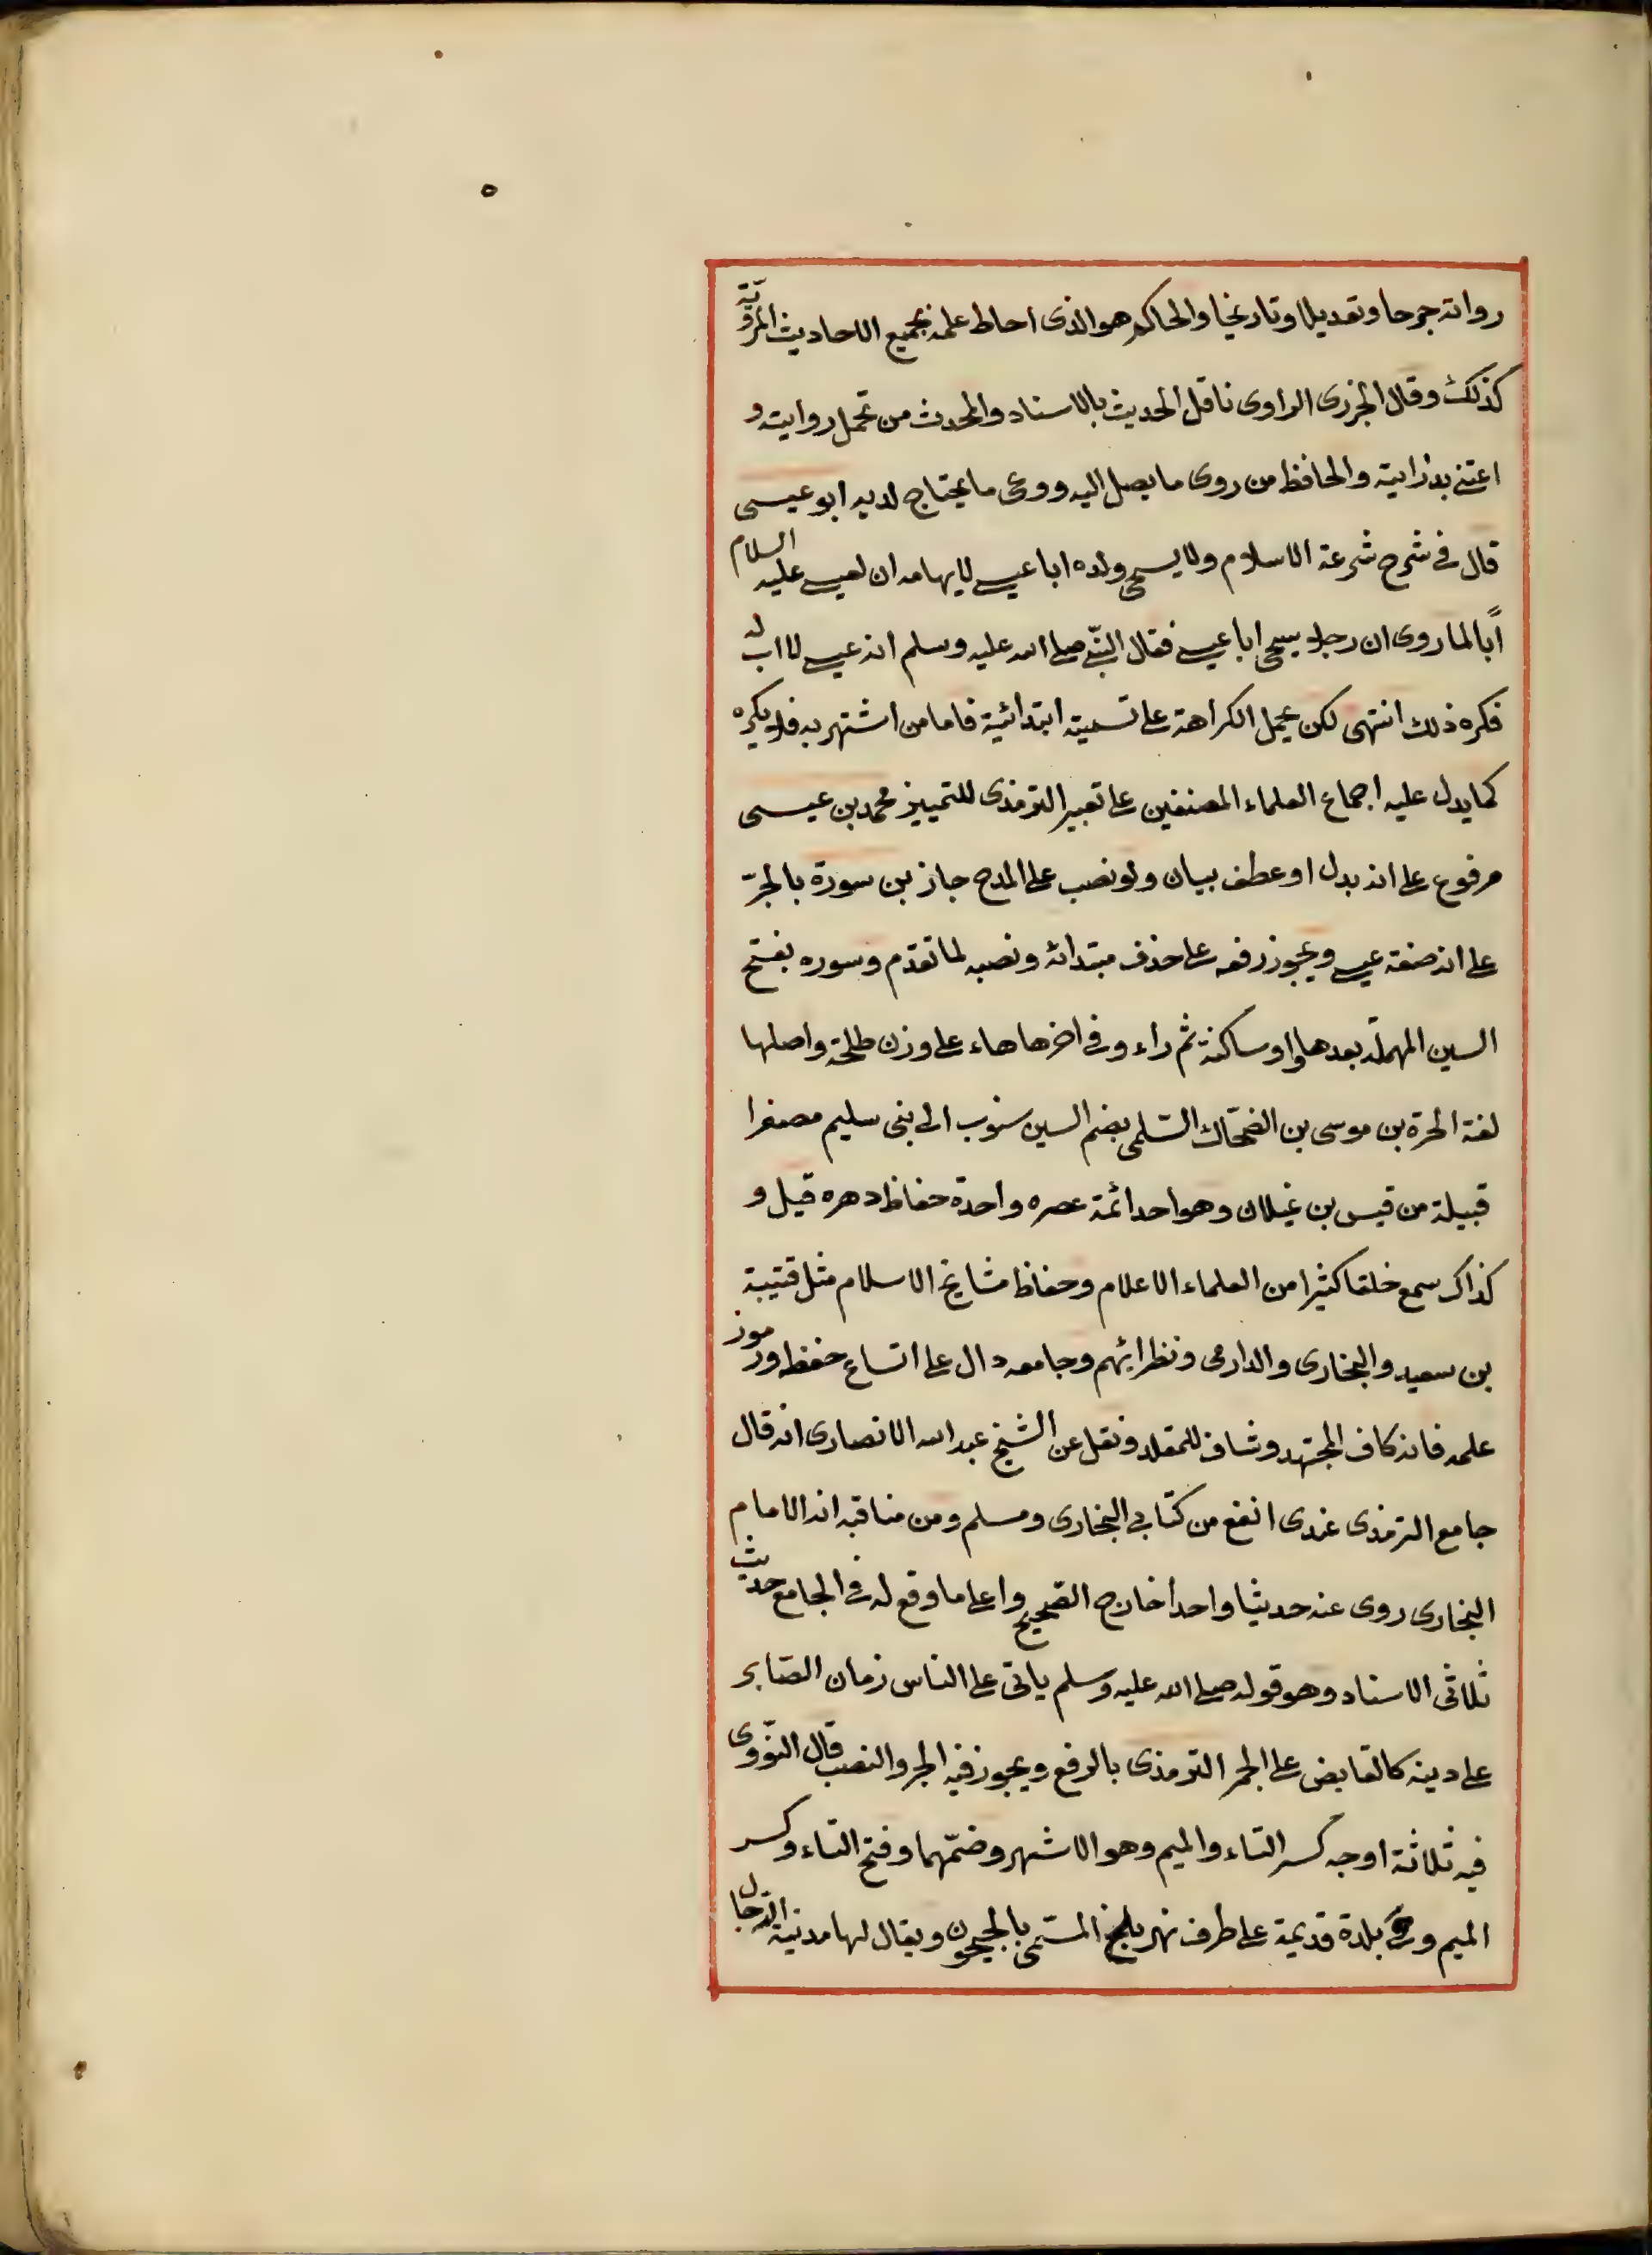 رواته جرحا وتعديلا وتاريخا والحاكم هو الذى احاط علمه بجميع الاحاديث المروية
كذلك وقال الجزرى الراوى ناقل الحديث بالاسناد والمحدث من تحمل روايته و
اعتنى بدرايته والحافظ من روى ما يصل اليه ووعى ما يحتاج لديه ابو عيسى
قال فى شرح شرعة الاسلام ولا يسمى ولده ابا عيسى لايهامه ان لعيسى عليه السلام
أبا لما روى ان رجلا يسمى ابا عيسى فقال النبى صلى الله عليه وسلم ان عيسى لا اب له
فكره ذلك انتهى لكن يحمل الكراهة على تسمية ابتدائية فاما من اشتهر به فلا يكره
كما يدل عليه اجماع العلماء المصنفين على تعبير الترمذى للتمييز محمد بن عيسى
مرفوع على انه بدل او عطف بيان ولو نصب على المدح جاز بن سورة بالجرّ
على انه صفة عيسى ويجوز رفعه على حذف مبتدائه ونصبه لما تقدم وسوره بفتح
السين المهملة بعدها واو ساكنة ثم راء وفى اخرها هاء على وزن طلحة واصلها
لغة الحرة بن موسى بن الضحّاك السّلمى بضم السين سنوب الى بنى سليم مصغرا
قبيلة من قيس بن غيلان وهو احد ائمة عصره واحدة حفاظ دهره قيل و
كذاك سمع خلقا كثيرا من العلماء الاعلام وحفاظ مشايخ الاسلام مثل قتيبة
بن سعيد والبخارى والدارمى ونظرائهم وجامعه دال على اتساع حفظه ورموز
علمه فانه كاف المجتهد وشاف للمقلد ونقل عن الشيخ عبد الله الانصارى انه قال
جامع الترمذى عندى انفع من كتابى البخارى ومسلم ومن مناقبه ان الامام
البخارى روى عنه حديثا واحدا خارج الصّحيح واعلى ما وقع له فى الجامع حديث
ثلاثى الاسناد وهو قوله صلى الله عليه وسلم ياتى على الناس زمان الصّابر
على دينه كالقابض على الجمر الترمذى بالرفع ويجوز فيه الجر والنصب قال النّووى
فيه ثلاثة اوجه كسر التاء والميم وهو الاشهر وضمّهما وفتح التاء وكسر
الميم وهى بلدة قديمة على طرف نهر بلخ المسمّى بالجيحون ويقال لها مدنية الرّجال